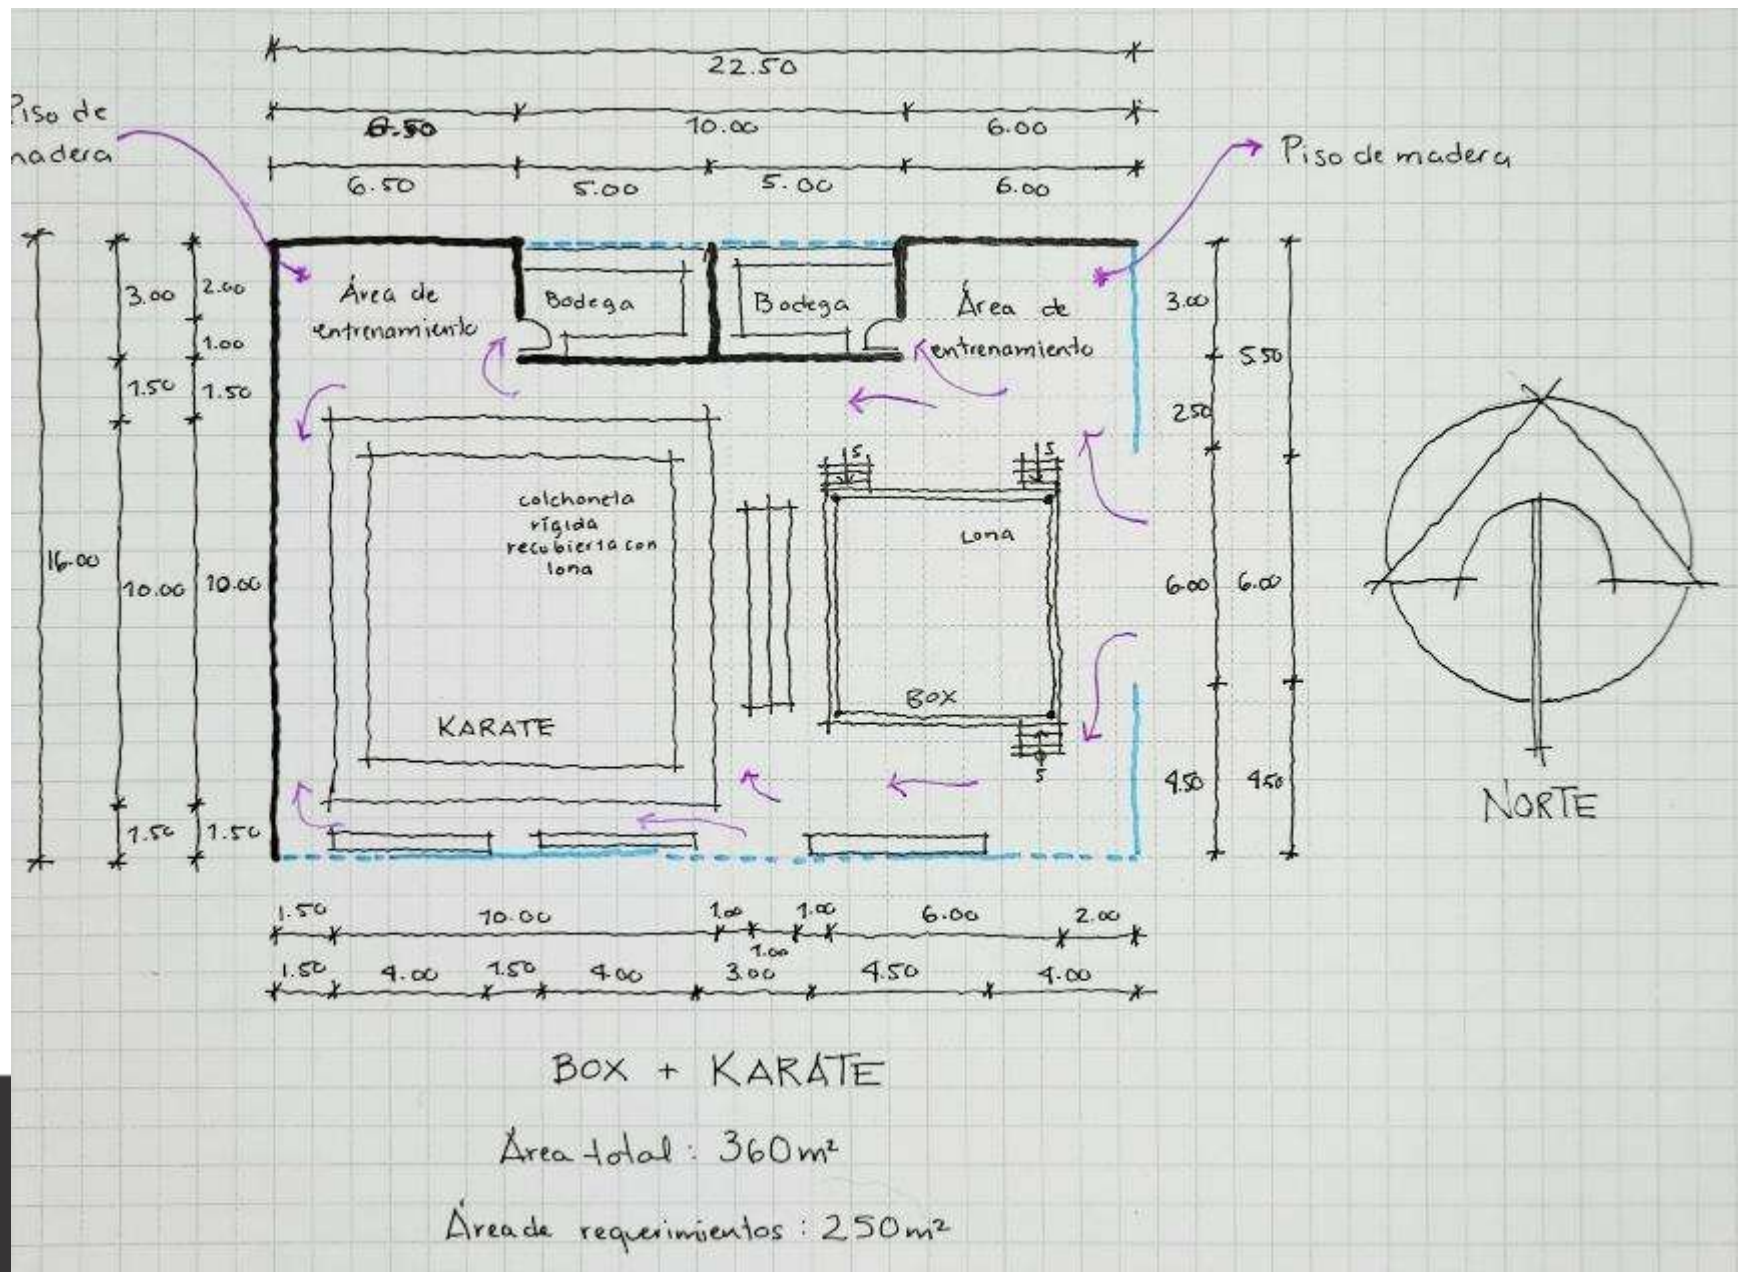 22.50
6.50
10.00
6.00
6.50
5.00
5.00
6.00
Piso de
madera
Piso de madera
16.00
3.00
1.50
10.00
1.50
2.00
1.00
1.50
10.00
1.50
Área de
entrenamiento
Bodega
Bodega
Área de
entrenamiento
colchoneta
rígida
recubierta con
lona
KARATE
5
5
Lona
BOX
5
3.00
2.50
6.00
4.50
5.50
6.00
4.50
NORTE
1.50
10.00
1.00
1.00
1.00
6.00
2.00
1.50
4.00
1.50
4.00
3.00
4.50
4.00
BOX + KARATE
Área total: 360m²
Área de requerimientos: 250m²